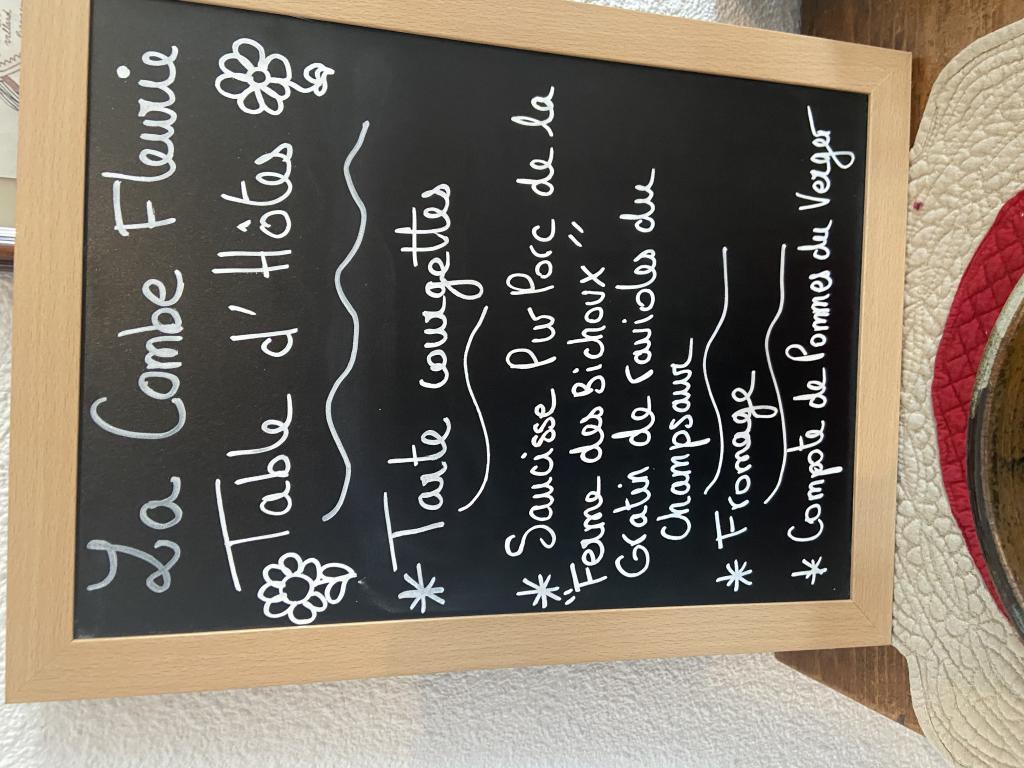 La Combe Fleurie
Table d'Hôtes
* Tarte courgettes
* Saucisse Pur Porc de la
"Ferme des Bichoux"
Gratin de ravioles du
Champsaur
* Fromage
* Compote de Pommes du Verger